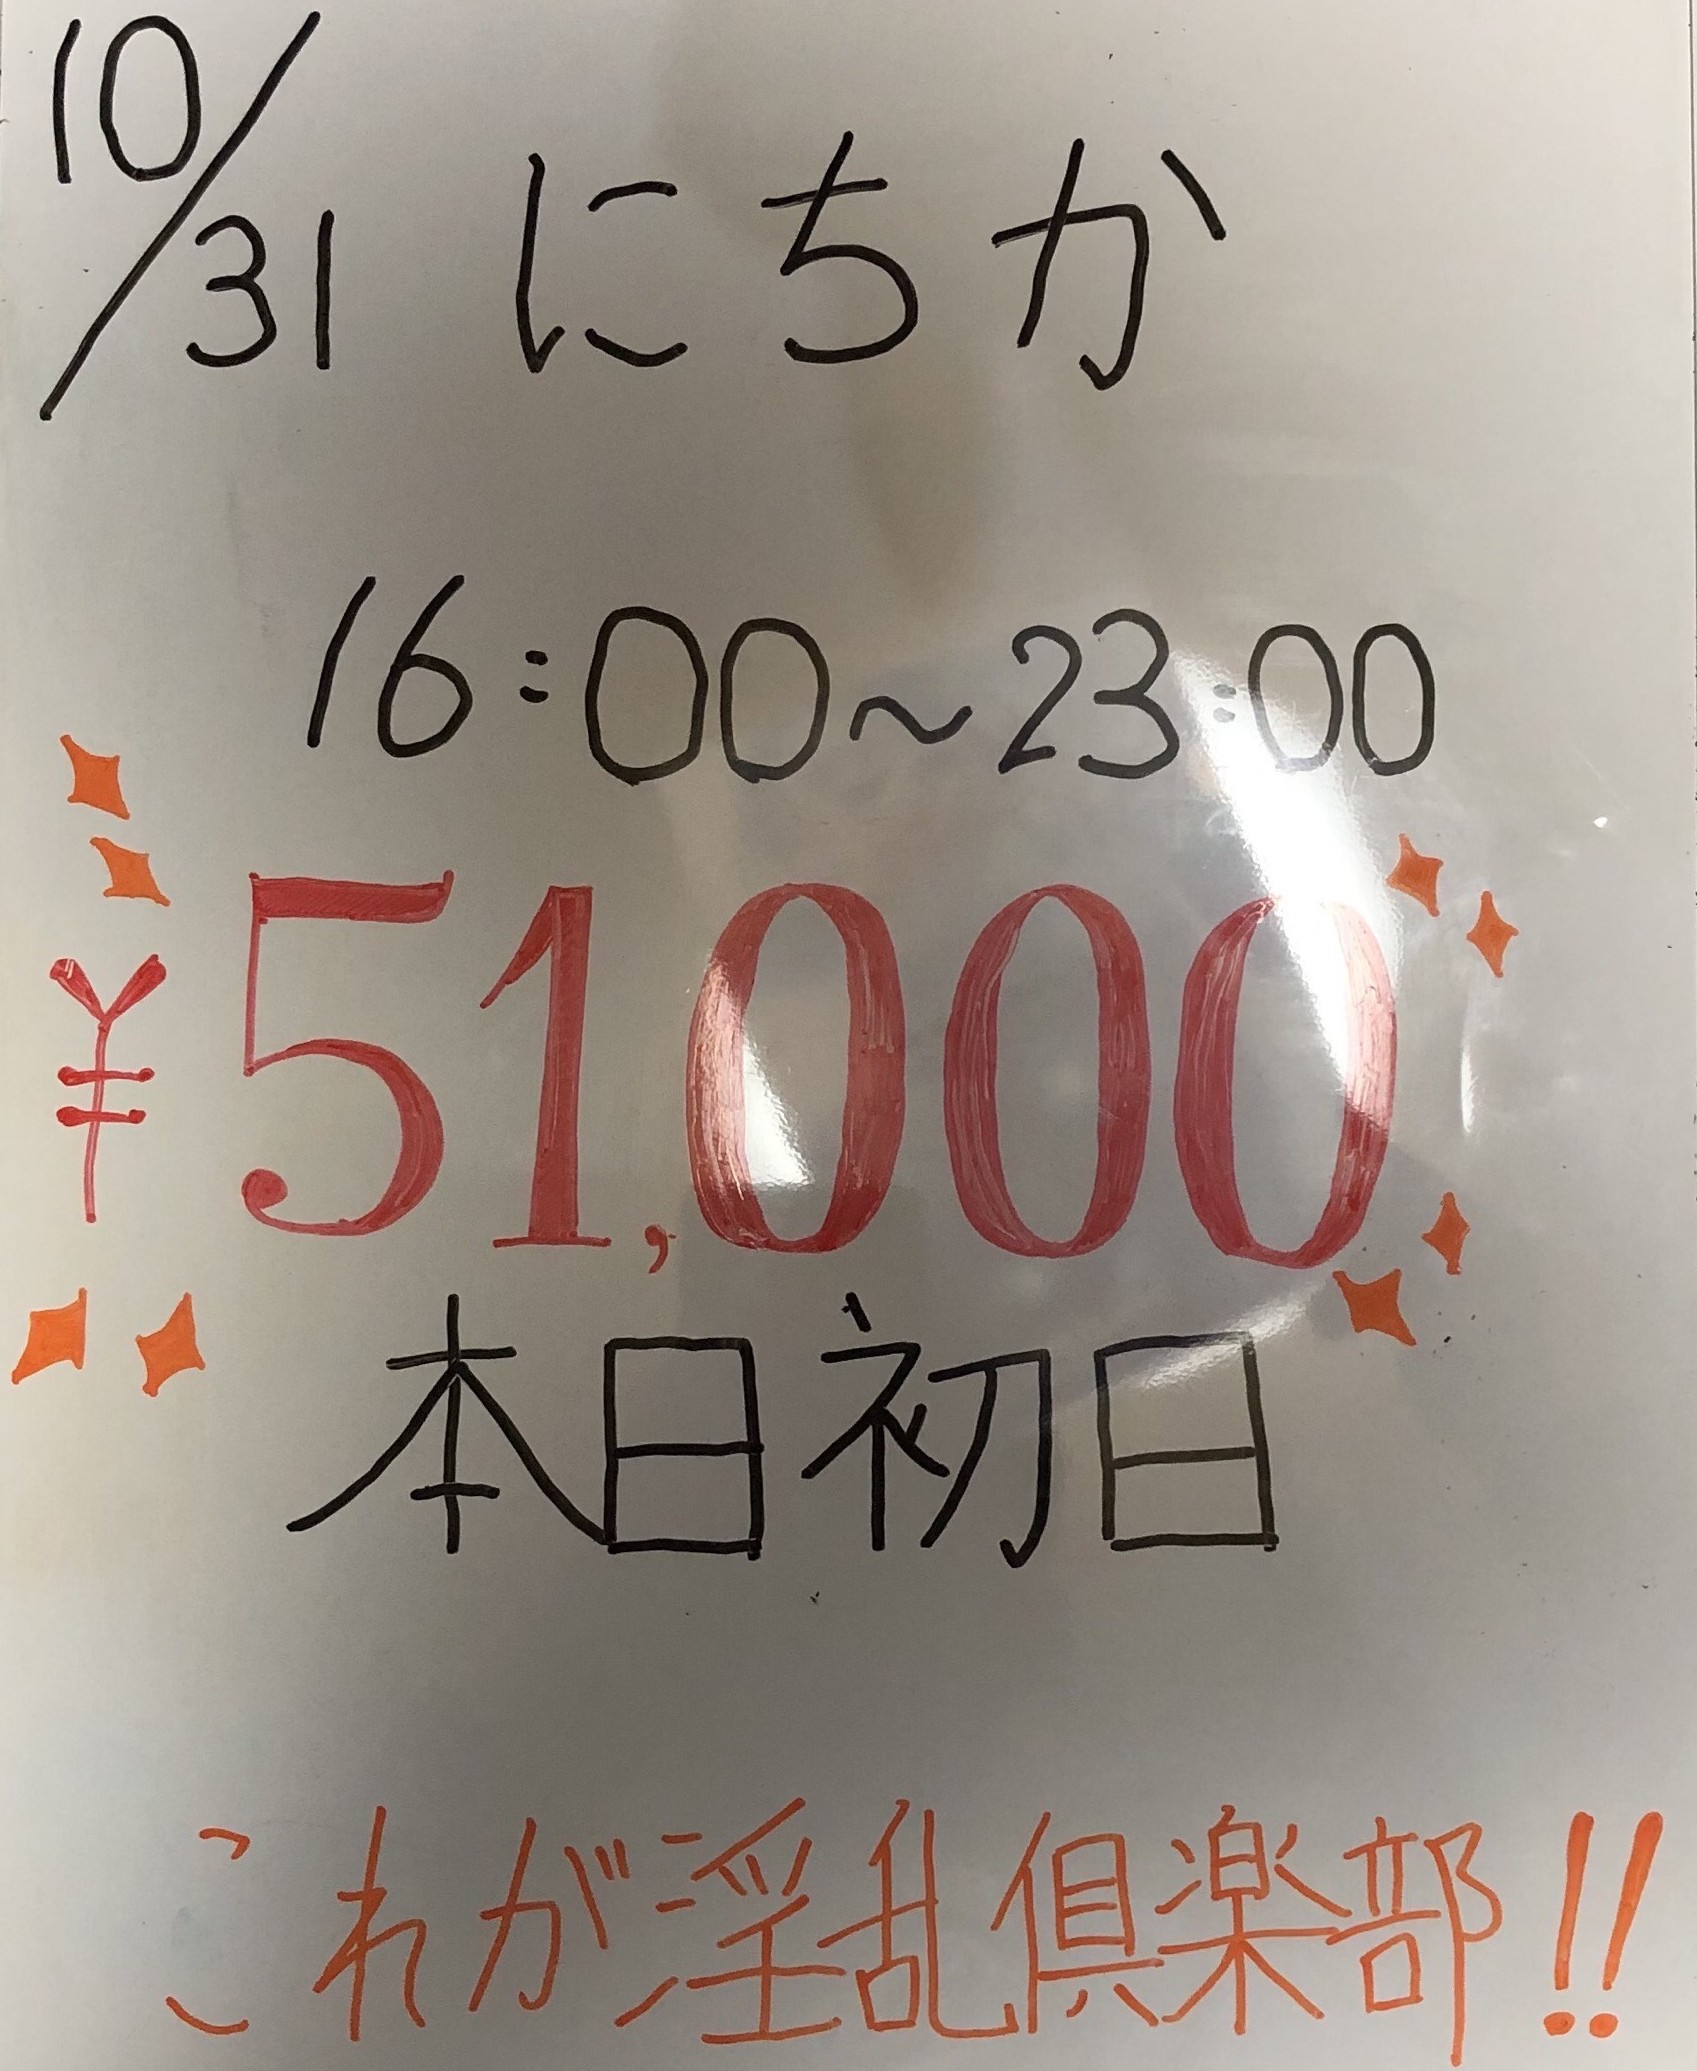 10/31 にちか
16:00~23:00
¥51,000
本日初日
これが淫乱倶楽部!!